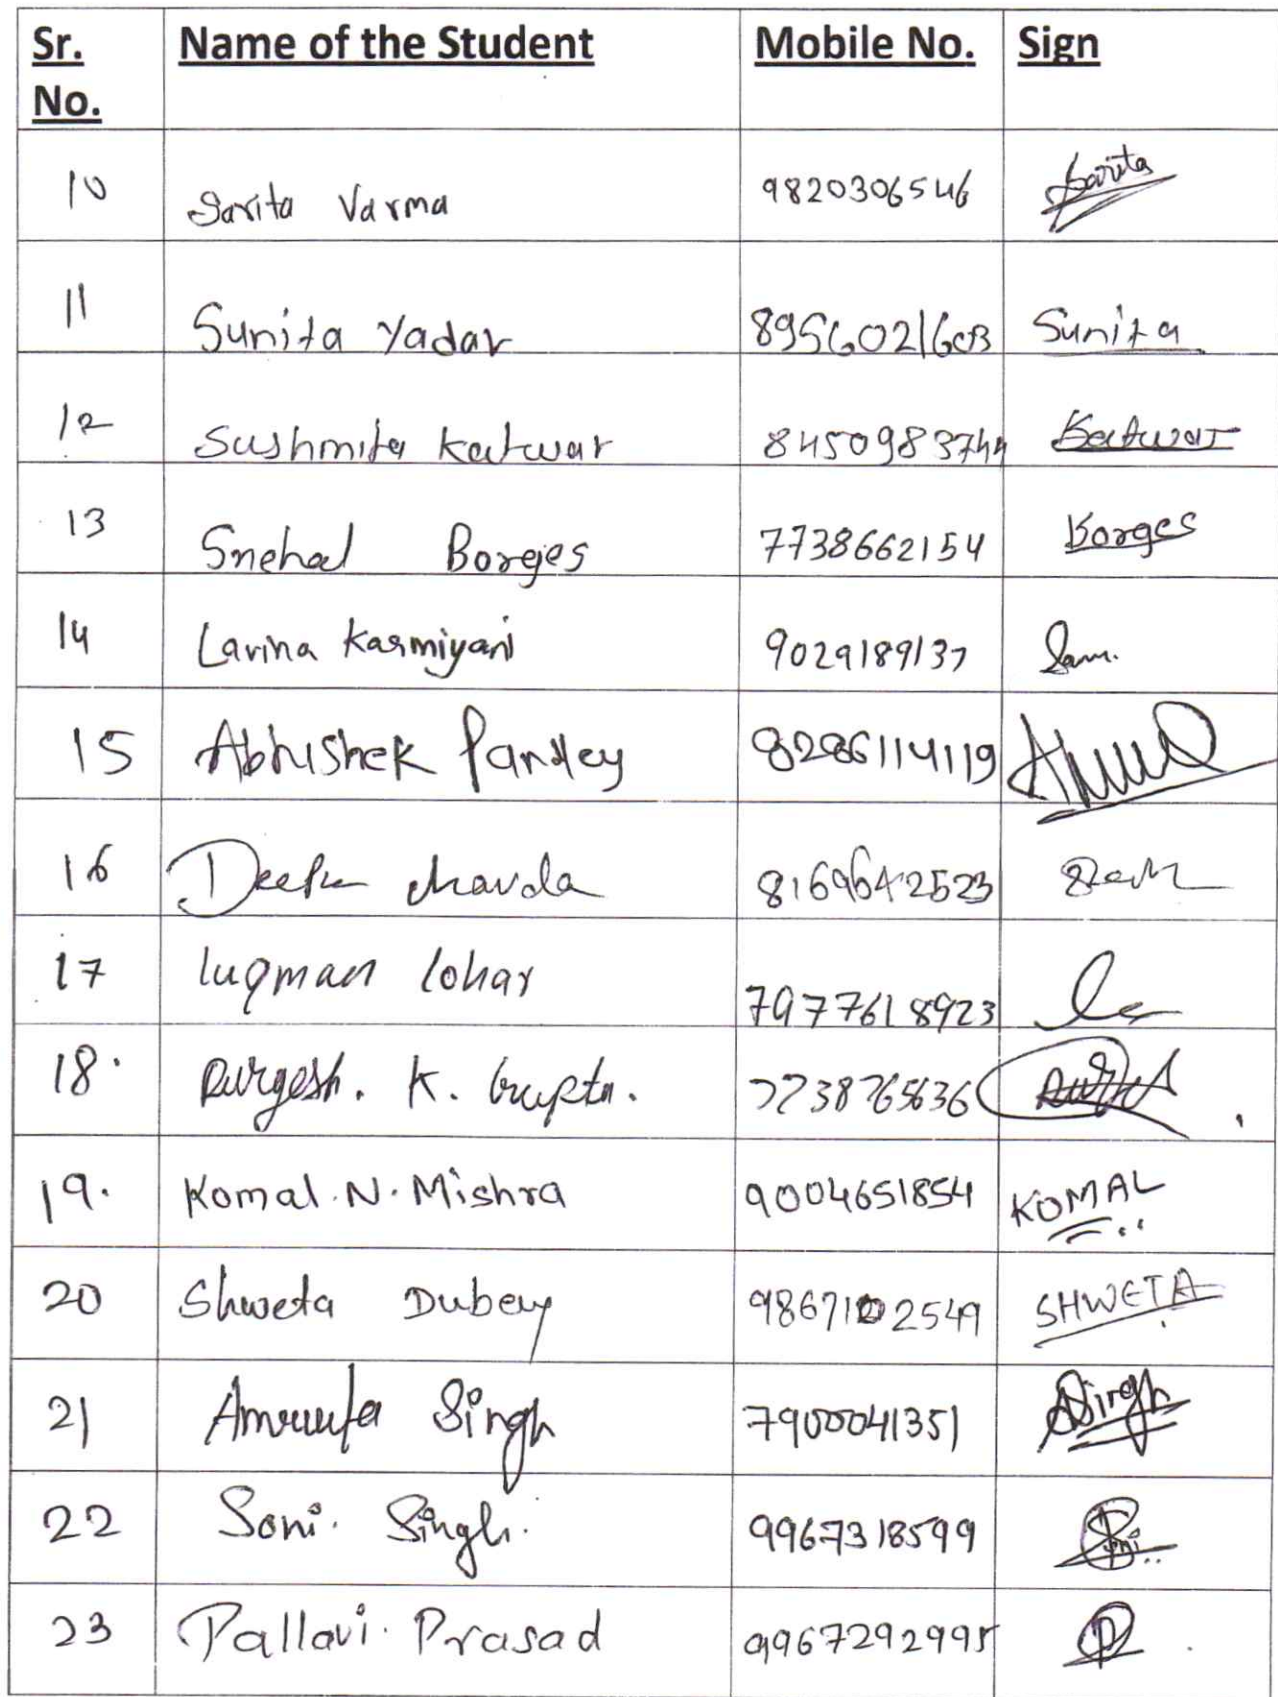 Sr. No. Name of the Student Mobile No. Sign
10 Sarita Varma 9820306546 Sarita
11 Sunita Yadav 8956021603 Sunita
12 Sushmita Katwar 8450983744 Katwar
13 Snehal Borges 7738662154 Borges
14 Lavina Karmiyani 9029189137
15 Abhishek Pandey 8286114119
16 Deepu chavda 8169642523
17 luqman lohar 7977618923
18. Durgesh. K. Gupta. 7738765636
19. Komal.N.Mishra 9004651854 KOMAL
20 Shweta Dubey 9867102549 SHWETA
21 Amruta Singh 7900041351 Singh
22 Soni. Singh. 9967318599 Soni
23 Pallavi. Prasad 9967292995